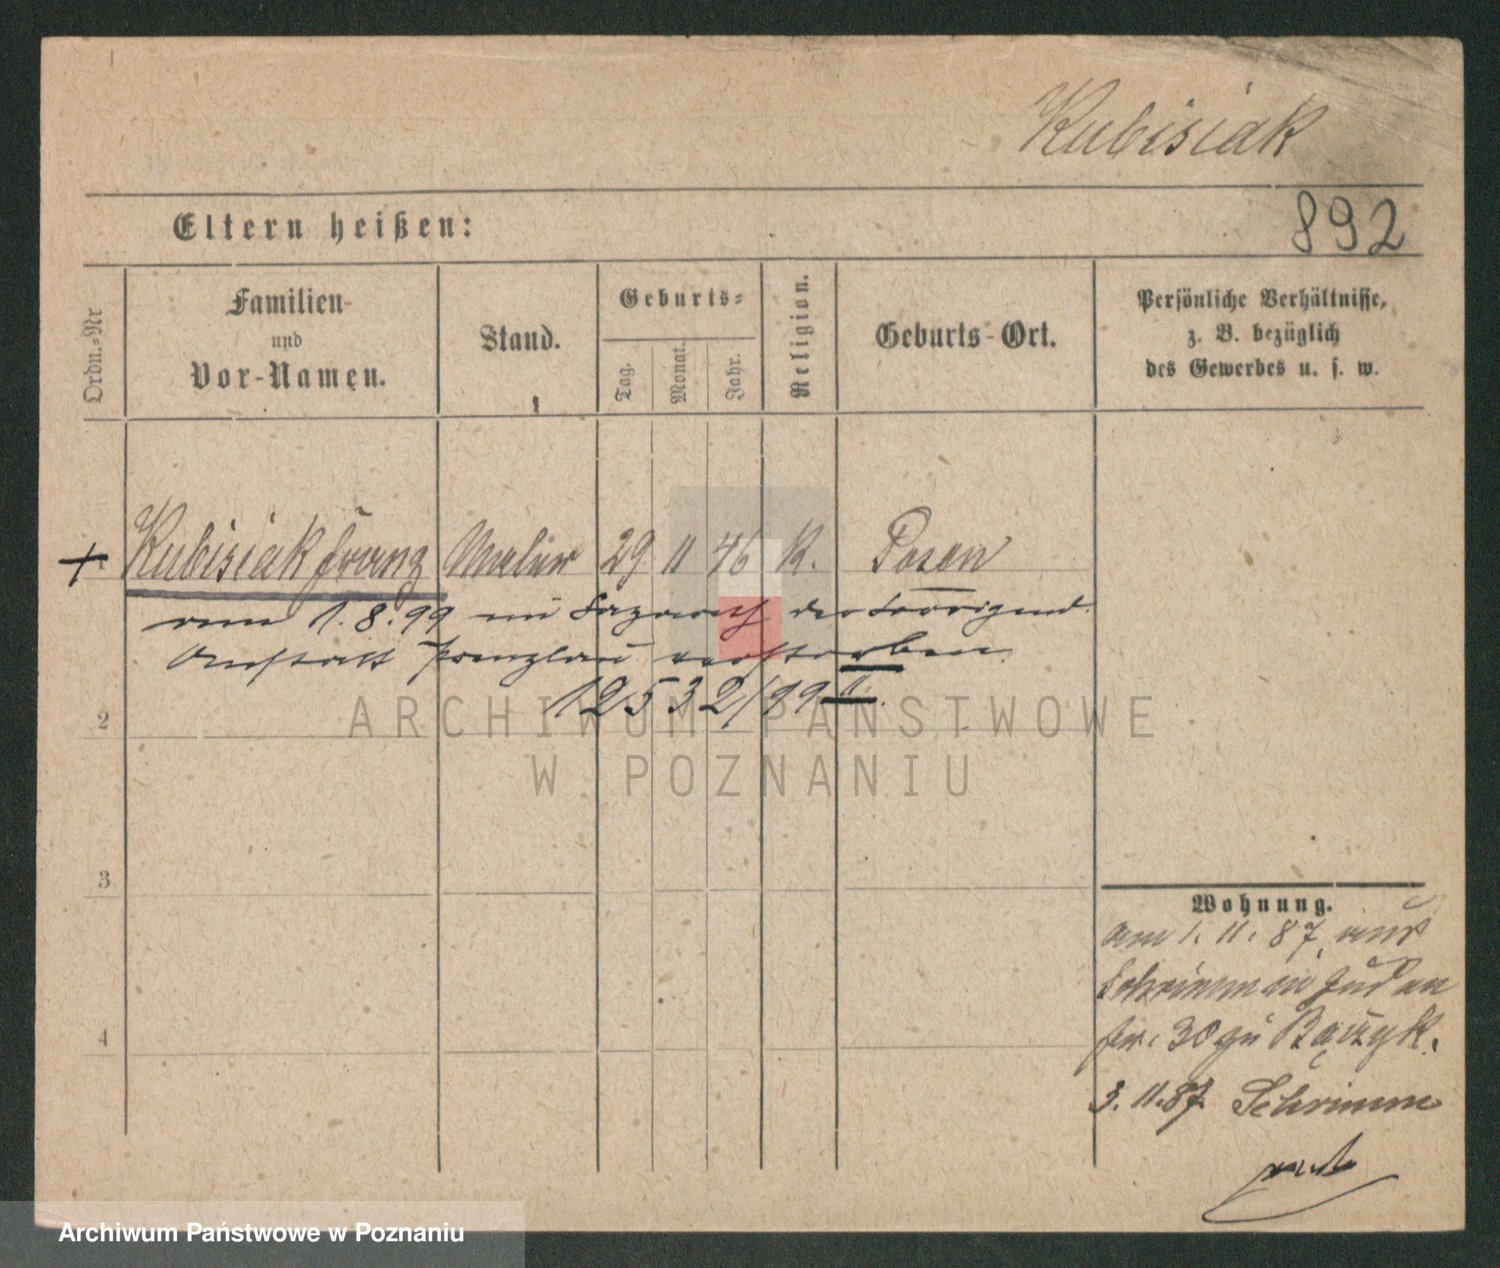 Kubisiak
Eltern heißen:
892
Ordn.-Nr
Familien-
und
Vor-Namen.
Stand.
Geburts-
Tag.
Monat.
Jahr.
Religion.
Geburts-Ort.
Persönliche Verhältnisse,
z. B. bezüglich
des Gewerbes u. s. w.
+ Kubisiak Franz Maler 29 11 46 K. Posen
1.8.99 im Lazareth der Corrigend.
Anstalt Prenzlau verstorben.
12532/99 II.
2
3
4
Wohnung.
am 1. 11. 87 aus
Schrimm in Juden
str. 30 zu
3. 11. 87 Schrimm
ARCHIWUM PAŃSTWOWE
W POZNANIU
Archiwum Państwowe w Poznaniu